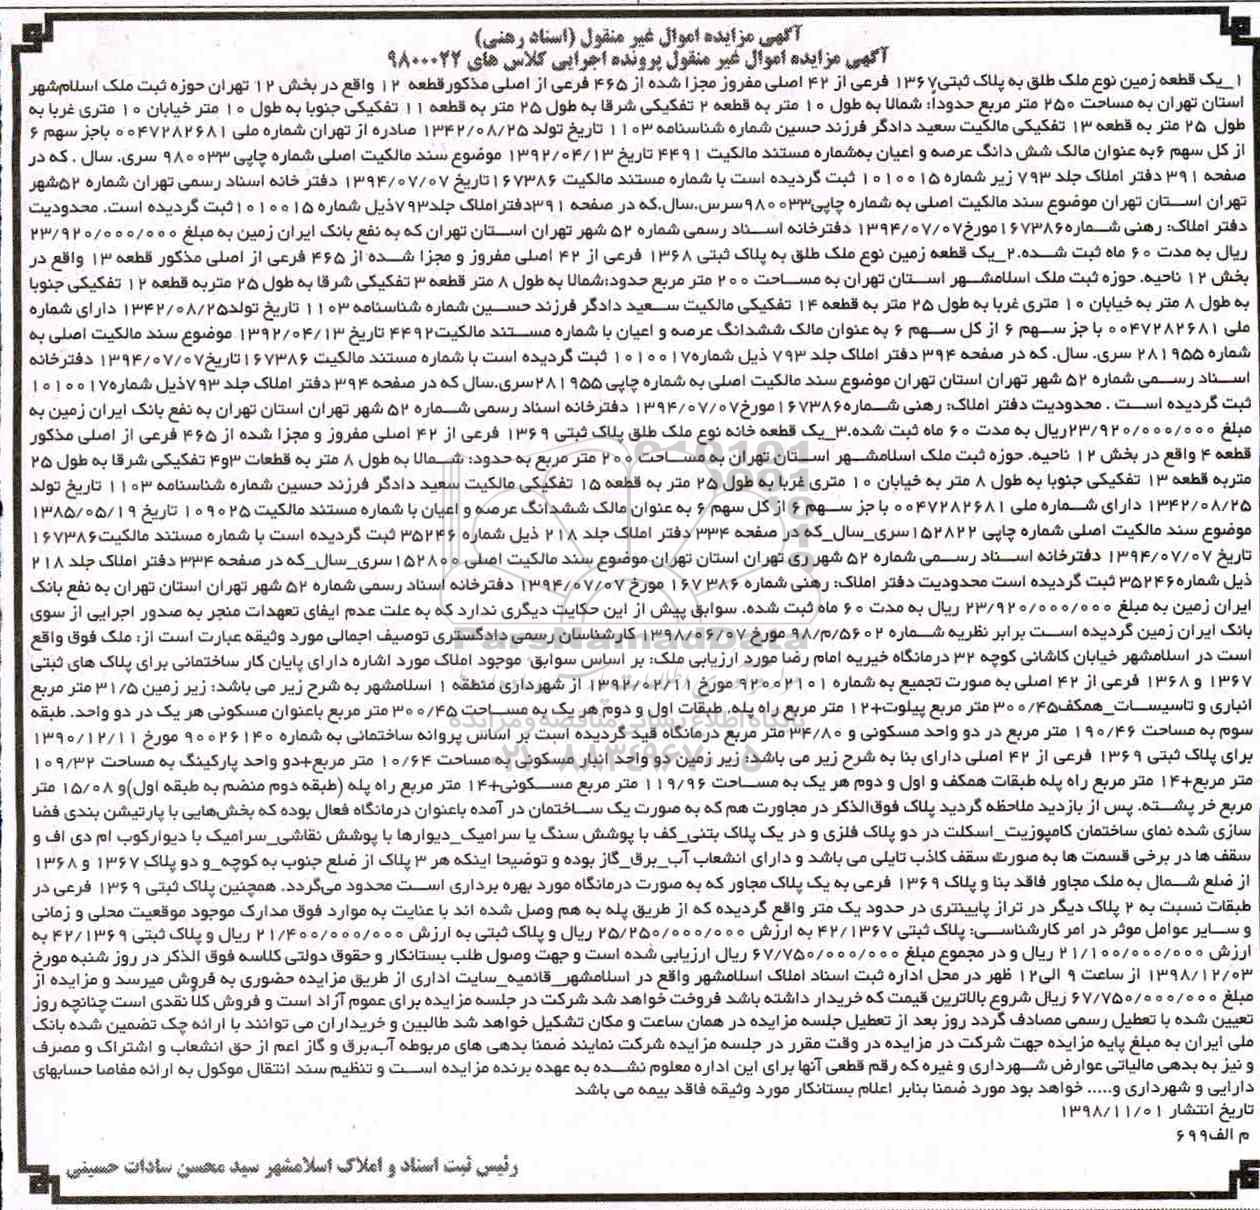 آگهی مزایده اموال غیر منقول (اسناد رهنی)
آگهی مزایده اموال غیر منقول پرونده اجرایی کلاس های ۹۸۰۰۰۲۲
۱_یک قطعه زمین نوع ملک طلق به پلاک ثبتی۱۳۶۷ فرعی از ۴۲ اصلی مفروز مجزا شده از ۴۶۵ فرعی از اصلی مذکورقطعه ۱۲ واقع در بخش ۱۲ تهران حوزه ثبت ملک اسلام‌شهر
استان تهران به مساحت ۲۵۰ متر مربع حدوداً: شمالا به طول ۱۰ متر به قطعه ۲ تفکیکی شرقا به طول ۲۵ متر به قطعه ۱۱ تفکیکی جنوبا به طول ۱۰ متر خیابان ۱۰ متری غربا به
طول ۲۵ متر به قطعه ۱۳ تفکیکی مالکیت سعید دادگر فرزند حسین شماره شناسنامه ۱۱۰۳ تاریخ تولد ۱۳۴۲/۰۸/۲۵ صادره از تهران شماره ملی ۰۰۴۷۲۸۲۶۸۱ باجز سهم ۶
از کل سهم ۶به عنوان مالک شش دانگ عرصه و اعیان به‌شماره مستند مالکیت ۴۴۹۱ تاریخ ۱۳۹۲/۰۴/۱۳ موضوع سند مالکیت اصلی شماره چاپی ۹۸۰۰۳۳ سری. سال . که در
صفحه ۳۹۱ دفتر املاک جلد ۷۹۳ زیر شماره ۱۰۱۰۰۱۵ ثبت گردیده است با شماره مستند مالکیت ۱۶۷۳۸۶تاریخ ۱۳۹۴/۰۷/۰۷ دفتر خانه اسناد رسمی تهران شماره ۵۲شهر
تهران استان تهران موضوع سند مالکیت اصلی به شماره چاپی۹۸۰۰۳۳سرس.سال.که در صفحه ۳۹۱دفتراملاک جلد۷۹۳ذیل شماره ۱۰۱۰۰۱۵ثبت گردیده است. محدودیت
دفتر املاک: رهنی شماره۱۶۷۳۸۶مورخ۱۳۹۴/۰۷/۰۷ دفترخانه اسناد رسمی شماره ۵۲ شهر تهران استان تهران که به نفع بانک ایران زمین به مبلغ ۲۳/۹۲۰/۰۰۰/۰۰۰
ریال به مدت ۶۰ ماه ثبت شده.۲_یک قطعه زمین نوع ملک طلق به پلاک ثبتی ۱۳۶۸ فرعی از ۴۲ اصلی مفروز و مجزا شده از ۴۶۵ فرعی از اصلی مذکور قطعه ۱۳ واقع در
بخش ۱۲ ناحیه. حوزه ثبت ملک اسلامشهر استان تهران به مساحت ۲۰۰ متر مربع حدود:شمالا به طول ۸ متر قطعه ۳ تفکیکی شرقا به طول ۲۵ متربه قطعه ۱۲ تفکیکی جنوبا
به طول ۸ متر به خیابان ۱۰ متری غربا به طول ۲۵ متر به قطعه ۱۴ تفکیکی مالکیت سعید دادگر فرزند حسین شماره شناسنامه ۱۱۰۳ تاریخ تولد۱۳۴۲/۰۸/۲۵ دارای شماره
ملی ۰۰۴۷۲۸۲۶۸۱ با جز سهم ۶ از کل سهم ۶ به عنوان مالک ششدانگ عرصه و اعیان با شماره مستند مالکیت۴۴۹۲ تاریخ ۱۳۹۲/۰۴/۱۳ موضوع سند مالکیت اصلی به
شماره ۲۸۱۹۵۵ سری. سال. که در صفحه ۳۹۴ دفتر املاک جلد ۷۹۳ ذیل شماره۱۰۱۰۰۱۷ ثبت گردیده است با شماره مستند مالکیت ۱۶۷۳۸۶تاریخ۱۳۹۴/۰۷/۰۷ دفترخانه
اسناد رسمی شماره ۵۲ شهر تهران استان تهران موضوع سند مالکیت اصلی به شماره چاپی ۲۸۱۹۵۵سری.سال که در صفحه ۳۹۴ دفتر املاک جلد ۷۹۳ذیل شماره۱۰۱۰۰۱۷
ثبت گردیده است . محدودیت دفتر املاک: رهنی شماره۱۶۷۳۸۶مورخ۱۳۹۴/۰۷/۰۷ دفترخانه اسناد رسمی شماره ۵۲ شهر تهران استان تهران به نفع بانک ایران زمین به
مبلغ ۲۳/۹۲۰/۰۰۰/۰۰۰ریال به مدت ۶۰ ماه ثبت شده.۳_یک قطعه خانه نوع ملک طلق پلاک ثبتی ۱۳۶۹ فرعی از ۴۲ اصلی مفروز و مجزا شده از ۴۶۵ فرعی از اصلی مذکور
قطعه ۴ واقع در بخش ۱۲ ناحیه. حوزه ثبت ملک اسلامشهر استان تهران به مساحت ۲۰۰ متر مربع به حدود: شمالا به طول ۸ متر به قطعات ۳و۴ تفکیکی شرقا به طول ۲۵
متربه قطعه ۱۳ تفکیکی جنوبا به طول ۸ متر به خیابان ۱۰ متری غربا به طول ۲۵ متر به قطعه ۱۵ تفکیکی مالکیت سعید دادگر فرزند حسین شماره شناسنامه ۱۱۰۳ تاریخ تولد
۱۳۴۲/۰۸/۲۵ دارای شماره ملی ۰۰۴۷۲۸۲۶۸۱ با جز سهم ۶ از کل سهم ۶ به عنوان مالک ششدانگ عرصه و اعیان با شماره مستند مالکیت ۱۰۹۰۲۵ تاریخ ۱۳۸۵/۰۵/۱۹
موضوع سند مالکیت اصلی شماره چاپی ۱۵۲۸۲۲سری_سال_که در صفحه ۳۳۴ دفتر املاک جلد ۲۱۸ ذیل شماره ۳۵۲۴۶ ثبت گردیده است با شماره مستند مالکیت۱۶۷۳۸۶
تاریخ ۱۳۹۴/۰۷/۰۷ دفترخانه اسناد رسمی شماره ۵۲ شهرری تهران استان تهران موضوع سند مالکیت اصلی ۱۵۲۸۰۰سری_سال_که در صفحه ۳۳۴ دفتر املاک جلد ۲۱۸
ذیل شماره۳۵۲۴۶ ثبت گردیده است محدودیت دفتر املاک: رهنی شماره ۱۶۷۳۸۶ مورخ ۱۳۹۴/۰۷/۰۷ دفترخانه اسناد رسمی شماره ۵۲ شهر تهران استان تهران به نفع بانک
ایران زمین به مبلغ ۲۳/۹۲۰/۰۰۰/۰۰۰ ریال به مدت ۶۰ ماه ثبت شده. سوابق پیش از این حکایت دیگری ندارد که به علت عدم ایفای تعهدات منجر به صدور اجرایی از سوی
بانک ایران زمین گردیده است برابر نظریه شماره ۵۶۰۲/م/۹۸ مورخ ۱۳۹۸/۰۶/۰۷ کارشناسان رسمی دادگستری توصیف اجمالی مورد وثیقه عبارت است از: ملک فوق واقع
است در اسلامشهر خیابان کاشانی کوچه ۳۲ درمانگاه خیریه امام رضا مورد ارزیابی ملک: بر اساس سوابق موجود املاک مورد اشاره دارای پایان کار ساختمانی برای پلاک های ثبتی
۱۳۶۷ و ۱۳۶۸ فرعی از ۴۲ اصلی به صورت تجمیع به شماره ۹۲۰۰۲۱۰۱ مورخ ۱۳۹۲/۰۲/۱۱ از شهرداری منطقه ۱ اسلامشهر به شرح زیر می باشد: زیر زمین ۳۱/۵ متر مربع
انباری و تاسیسات_همکف۳۰۰/۴۵ متر مربع پیلوت+۱۲ متر مربع راه پله. طبقات اول و دوم هر یک به مساحت ۳۰۰/۴۵ متر مربع باعنوان مسکونی هر یک در دو واحد. طبقه
سوم به مساحت ۱۹۰/۴۶ متر مربع در دو واحد مسکونی و ۳۴/۸۰ متر مربع درمانگاه قید گردیده است بر اساس پروانه ساختمانی به شماره ۹۰۰۲۶۱۴۰ مورخ ۱۳۹۰/۱۲/۱۱
برای پلاک ثبتی ۱۳۶۹ فرعی از ۴۲ اصلی دارای بنا به شرح زیر می باشد: زیر زمین دو واحد انبار مسکونی به مساحت ۱۰/۶۴ متر مربع+دو واحد پارکینگ به مساحت ۱۰۹/۳۲
متر مربع+۱۴ متر مربع راه پله طبقات همکف و اول و دوم هر یک به مساحت ۱۱۹/۹۶ متر مربع مسکونی+۱۴ متر مربع راه پله (طبقه دوم منضم به طبقه اول)و ۱۵/۰۸ متر
مربع خر پشته. پس از بازدید ملاحظه گردید پلاک فوق‌الذکر در مجاورت هم که به صورت یک ساختمان در آمده باعنوان درمانگاه فعال بوده که بخش‌هایی با پارتیشن بندی فضا
سازی شده نمای ساختمان کامپوزیت_اسکلت در دو پلاک فلزی و در یک پلاک بتنی_کف با پوشش سنگ یا سرامیک_دیوارها با پوشش نقاشی_سرامیک با دیوارکوب ام دی اف و
سقف ها در برخی قسمت ها به صورت سقف کاذب تایلی می باشد و دارای انشعاب آب_برق_گاز بوده و توضیحا اینکه هر ۳ پلاک از ضلع جنوب به کوچه_و دو پلاک ۱۳۶۷ و ۱۳۶۸
از ضلع شمال به ملک مجاور فاقد بنا و پلاک ۱۳۶۹ فرعی به یک پلاک مجاور که به صورت درمانگاه مورد بهره برداری است محدود می‌گردد. همچنین پلاک ثبتی ۱۳۶۹ فرعی در
طبقات نسبت به ۲ پلاک دیگر در تراز پایینتری در حدود یک متر واقع گردیده که از طریق پله به هم وصل شده اند با عنایت به موارد فوق مدارک موجود موقعیت محلی و زمانی
و سایر عوامل موثر در امر کارشناسی: پلاک ثبتی ۴۲/۱۳۶۷ به ارزش ۲۵/۲۵۰/۰۰۰/۰۰۰ ریال و پلاک ثبتی به ارزش ۲۱/۴۰۰/۰۰۰/۰۰۰ ریال و پلاک ثبتی ۴۲/۱۳۶۹ به
ارزش ۲۱/۱۰۰/۰۰۰/۰۰۰ ریال و در مجموع مبلغ ۶۷/۷۵۰/۰۰۰/۰۰۰ ریال ارزیابی شده است و جهت وصول طلب بستانکار و حقوق دولتی کلاسه فوق الذکر در روز شنبه مورخ
۱۳۹۸/۱۲/۰۳ از ساعت ۹ الی۱۲ ظهر در محل اداره ثبت اسناد املاک اسلامشهر واقع در اسلامشهر_قائمیه_سایت اداری از طریق مزایده حضوری به فروش میرسد و مزایده از
مبلغ ۶۷/۷۵۰/۰۰۰/۰۰۰ ریال شروع بالاترین قیمت که خریدار داشته باشد فروخت خواهد شد شرکت در جلسه مزایده برای عموم آزاد است و فروش کلا نقدی است چنانچه روز
تعیین شده با تعطیل رسمی مصادف گردد روز بعد از تعطیل جلسه مزایده در همان ساعت و مکان تشکیل خواهد شد طالبین و خریداران می توانند با ارائه چک تضمین شده بانک
ملی ایران به مبلغ پایه مزایده جهت شرکت در مزایده در وقت مقرر در جلسه مزایده شرکت نمایند ضمنا بدهی های مربوطه آب،برق و گاز اعم از حق انشعاب و اشتراک و مصرف
و نیز به بدهی مالیاتی عوارض شهرداری و غیره که رقم قطعی آنها برای این اداره معلوم نشده به عهده برنده مزایده است و تنظیم سند انتقال موکول به ارائه مفاصا حسابهای
دارایی و شهرداری و..... خواهد بود مورد ضمنا بنابر اعلام بستانکار مورد وثیقه فاقد بیمه می باشد
تاریخ انتشار ۱۳۹۸/۱۱/۰۱
م الف۶۹۹
رئیس ثبت اسناد و املاک اسلامشهر سید محسن سادات حسینی
ParsNamadData
پایگاه اطلاع رسانی مناقصه و مزایده
۰۲۱-۸۸۳۴۹۶۷۰-۵